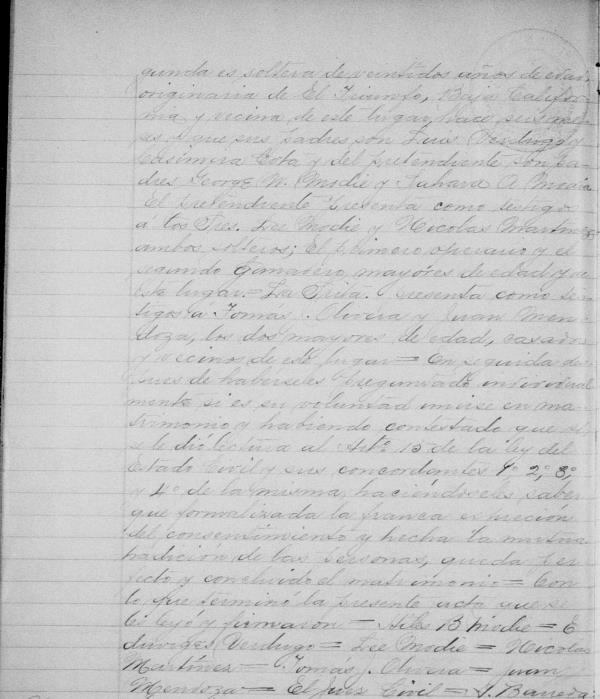 gunda es soltera de veintidos años de edad,
originaria de El Triunfo, Baja Califor-
nia y vecina de este lugar, hace seis me-
ses y que sus padres son Luis Verdugo y
Casimira Cota y del pretendiente son pa-
dres George W. Modie y Sahara A Modie
El pretendiente presenta como testigo
á los Sres. Lee Modie y Nicolas Martinez
ambos solteros; El primero operario y el
segundo Camarero, mayores de edad y de
este lugar.= La Srita. presenta como tes-
tigos a Tomas J. Olivera y Juan Men-
doza, los dos mayores de edad, casados
y vecinos de este lugar= En seguida des-
pues de haberseles preguntado individual
mente si es su voluntad unirse en ma-
trimonio y habiendo contestado que si,
se le dió lectura al Art.º 15 de la ley del
Estado Civil y sus concordantes 1º 2º, 3º,
y 4º de la misma, haciéndoseles saber
que formalizada la franca espresión
del consentimiento y hecha la mutua
tradición de las personas, queda per
fecto y concluido el matrimonio= Con
lo que terminó la presente acta que se
les leyó y firmaron= B Modie= E
duviges Verdugo= Lee Modie= Nicolas
Martínez= Tomas J. Olivera= Juan
Mendoza= El Juez Civil=